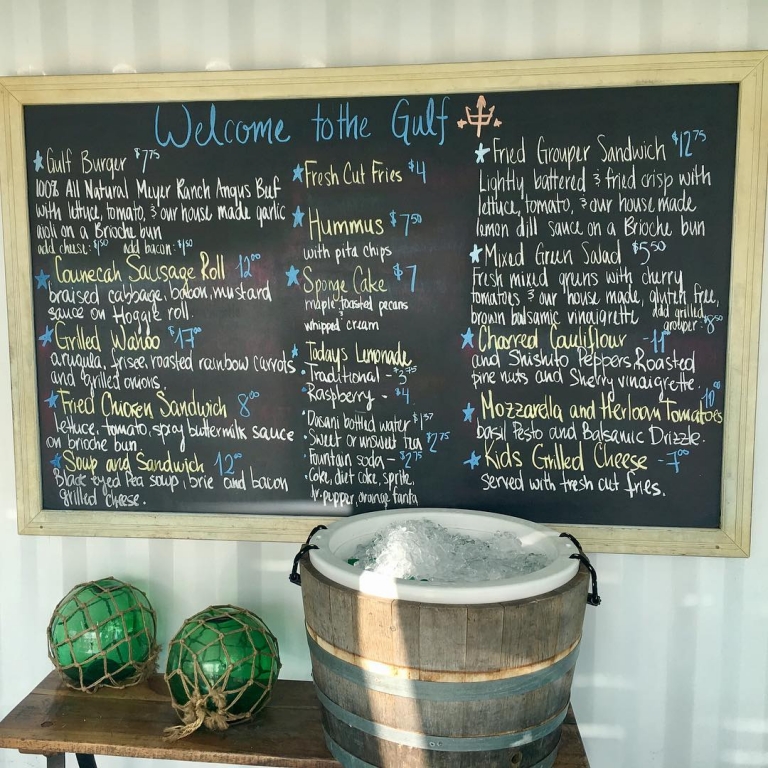 Welcome to the Gulf
Gulf Burger $7.75
100% All Natural Meyer Ranch Angus Beef
with lettuce, tomato, & our house made garlic
aioli on a Brioche bun
add cheese: $1.50 add bacon: $1.50
Conecuh Sausage Roll 12.00
braised cabbage, bacon, mustard
sauce on Hoggie roll.
Grilled Wahoo $17.00
arugula, frisee, roasted rainbow carrots
and grilled onions.
Fried Chicken Sandwich 8.00
lettuce, tomato, spicy buttermilk sauce
on brioche bun.
Soup and Sandwich 12.00
Black eyed Pea soup, brie and bacon
grilled cheese.
Fresh Cut Fries $4
Hummus $7.50
with pita chips
Sponge Cake $7
maple, toasted pecans
&
whipped cream
Todays Lemonade
Traditional - $3.75
Raspberry - $4
Dasani bottled water $1.57
Sweet or unsweet tea $2.75
Fountain soda - $2.75
Coke, diet coke, sprite,
dr. pepper, orange fanta
Fried Grouper Sandwich $12.75
Lightly battered & fried crisp with
lettuce, tomato, & our house made
lemon dill sauce on a Brioche bun
Mixed Green Salad $5.50
Fresh mixed greens with cherry
tomatoes & our house made, gluten free,
brown balsamic vinaigrette add grilled
grouper - $8.50
Charred Cauliflour - 11.00
and Shishito Peppers, Roasted
pine nuts and Sherry vinaigrette.
Mozzarella and Heirloom Tomatoes 10.00
basil Pesto and Balsamic Drizzle.
Kids Grilled Cheese - 7.00
served with fresh cut fries.